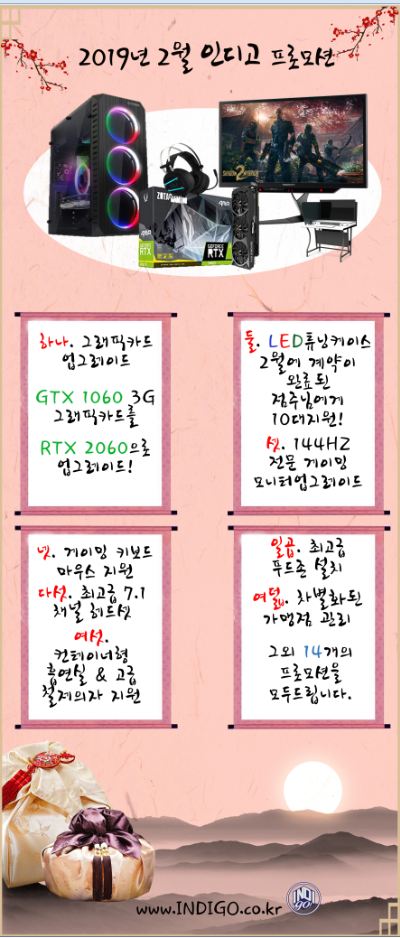 2019년 2월 인디고 프로모션
하나. 그래픽카드
업그레이드
GTX 1060 3G
그래픽카드를
RTX 2060으로
업그레이드!
둘. LED튜닝케이스
2월에 계약이
완료된
점주님에게
10대지원!
셋. 144HZ
전문 게이밍
모니터업그레이드
넷. 게이밍 키보드
마우스 지원
다섯. 최고급 7.1
채널 헤드셋
여섯.
컨테이너형
흡연실 & 고급
철제의자 지원
일곱. 최고급
푸드존 설치
여덟. 차별화된
가맹점 관리
그외 14개의
프로모션을
모두드립니다.
www.INDIGO.co.kr
INDI
GO
ZOTAC GAMING
AMP
GEFORCE
RTX